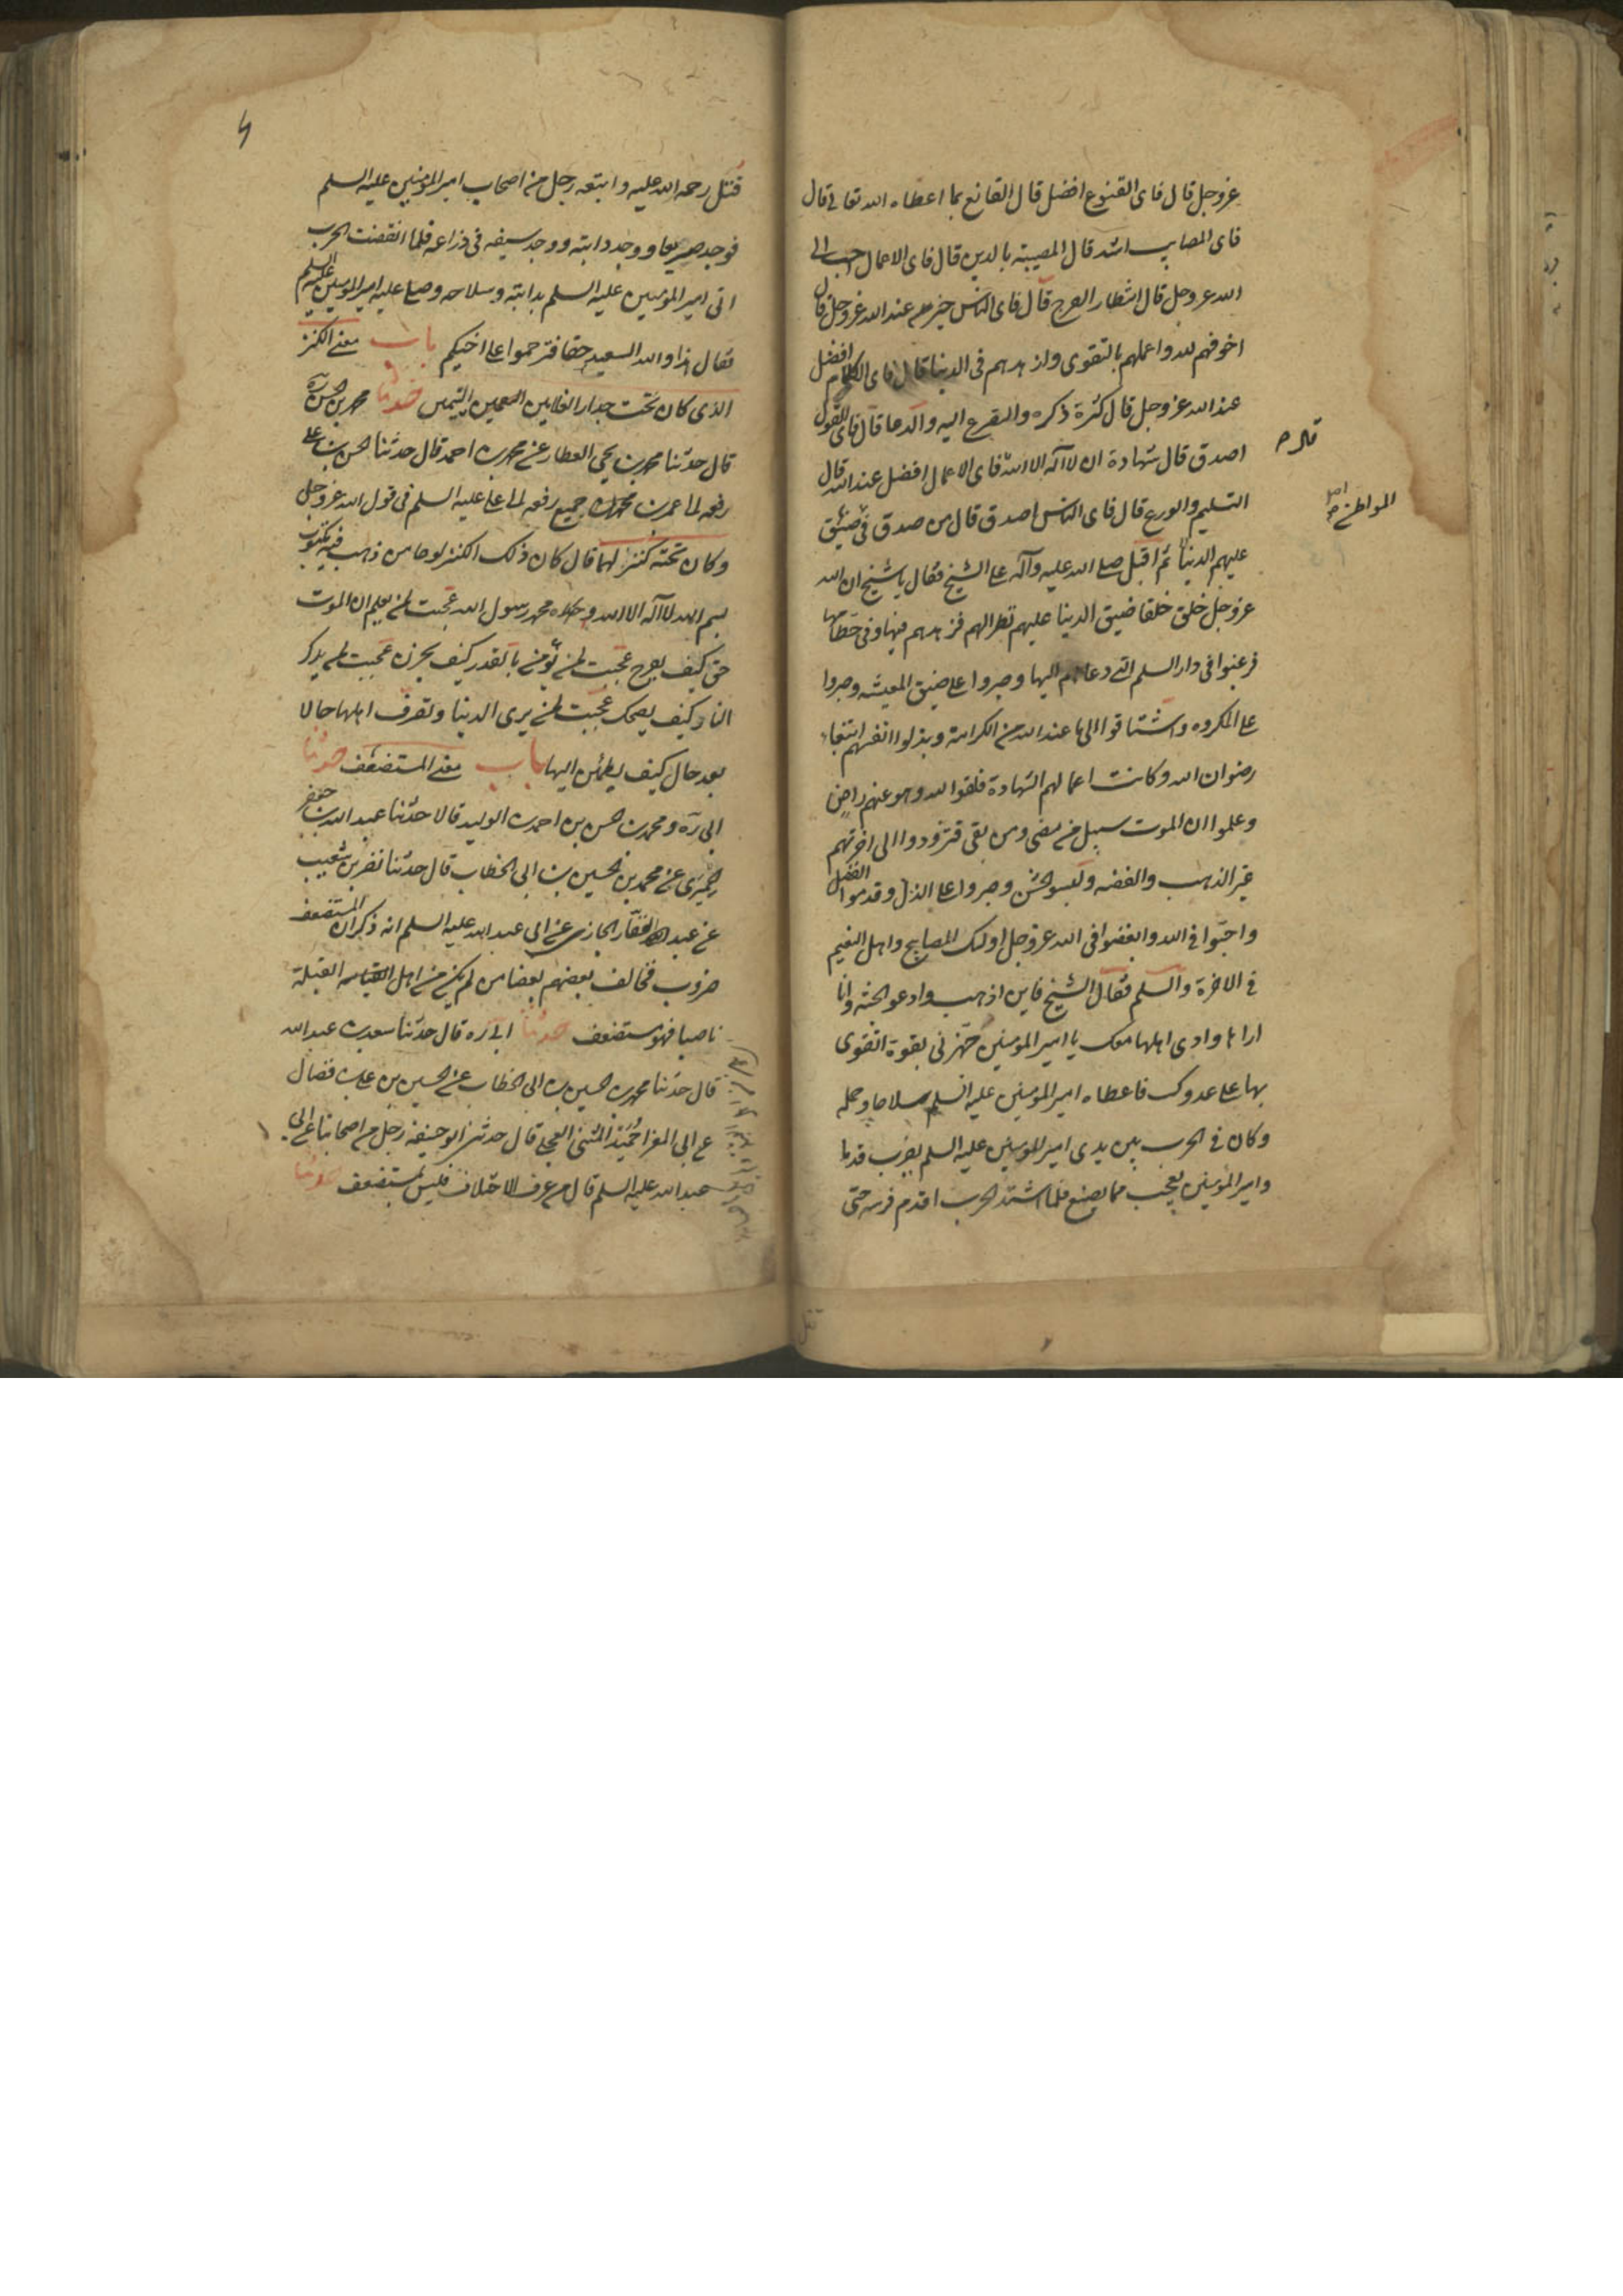 عزوجل قال فای القنوع افضل قال القانع بما اعطاه الله تعالی قال
فای المصایب اشد قال المصیبة بالدین قال فای الاعمال احب الی
الله عزوجل قال انتظار الفرج قال فای الناس خیر عند الله عزوجل قال
اخوفهم لله واعملهم بالتقوی وازهدهم فی الدنیا قال فای الکلام افضل
عند الله عزوجل قال کثرة ذکره والتضرع الیه والدعا قال فای القول
اصدق قال شهادة ان لا اله الا الله فای الاعمال افضل عند الله قال
التسلیم والورع قال فای الناس اصدق قال من صدق فی
المواطن
علیهم الدنیا ثم اقبل صلی الله علیه وآله علی الشیخ فقال یا شیخ ان الله
عزوجل خلق خلقا ضیق الدنیا علیهم نظرا لهم فزهدهم فیها وفی حطامها
فرغبوا فی دار السلم التی دعاهم الیها وصبروا علی ضیق المعیشه وصبروا
علی المکروه واشتاقوا الی ما عند الله من الکرامة وبذلوا انفسهم ابتغاء
رضوان الله وکانت اعمالهم الشهادة فلقوا الله وهو عنهم راض
وعلموا ان الموت سبیل من مضی ومن بقی فتزودوا الی اخرتهم
غیر الذهب والفضه ولبسوا الخشن وصبروا علی الذل وقدموا الفضل
واحبوا فی الله وابغضوا فی الله عزوجل اولئک المصابیح واهل النعیم
فی الاخرة والسلم فقال الشیخ فاین اذهب وادع الجنه وانا
اراها واری اهلها معک یا امیر المومنین جهزنی بقوة اتقوی
بها علی عدوک فاعطاه امیر المومنین علیه السلم سلاحا وحمله
وکان فی الحرب بین یدی امیر المومنین علیه السلم یضرب قدما
وامیر المومنین یعجب مما یصنع فلما اشتد الحرب اقدم فرسه حتی
قتل
قتل رحمة الله علیه واتبعه رجل من اصحاب امیر المومنین علیه السلم
فوجده صریعا ووجد دابته ووجد سیفه فی ذراعه فلما انقضت الحرب
اتی امیر المومنین علیه السلم بدابته وسلاحه وصلی علیه امیر المومنین علیه السلم
فقال هذا والله السعید حقا فترحموا علی اخیکم باب معنی الکنز
الذی کان تحت جدار الغلامین الیتیمین حدثنا محمد بن الحسن ره
قال حدثنا محمد بن یحیی العطار عن محمد بن احمد قال حدثنا الحسن بن علی
رفعه الی عمرو بن جمیع رفعه الی علی علیه السلم فی قول الله عزوجل
وکان تحته کنز لهما قال کان ذلک الکنز لوحا من ذهب فیه مکتوب
بسم الله لا اله الا الله محمد رسول الله عجبت لمن یعلم ان الموت
حق کیف یفرح عجبت لمن یؤمن بالقدر کیف یحزن عجبت لمن یذکر
النار کیف یضحک عجبت لمن یری الدنیا وتصرف اهلها حالا
بعد حال کیف یطمئن الیها باب معنی المستضعف حدثنا
ابی ره ومحمد بن حسن بن احمد بن الولید قالا حدثنا عبد الله بن جعفر
الحمیری عن محمد بن الحسین بن ابی الخطاب قال حدثنا نضر بن شعیب
عن عبد الغفار الجازی عن ابی عبد الله علیه السلم انه ذکر ان المستضعف
ضروب فخالف بعضهم بعضا من لم یکن من اهل القبلة
ناصبا فهو مستضعف حدثنا ابی ره قال حدثنا سعد بن عبد الله
قال حدثنا محمد بن الحسین بن ابی الخطاب عن الحسین بن علی بن فضال
عن ابی المغرا حمید المثنی العجلی قال حدثنی ابو حنیفه رجل من اصحابنا عن ابی
عبد الله علیه السلم قال من عرف الاختلاف فلیس بمستضعف حدثنا